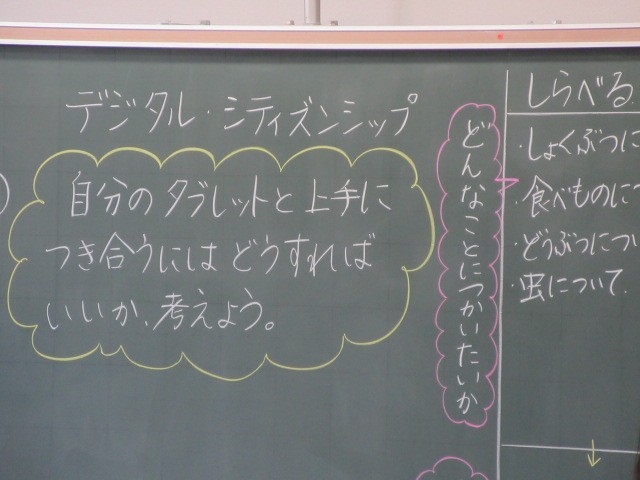 デジタル・シティズンシップ
自分のタブレットと上手に
つき合うにはどうすれば
いいか、考えよう。
どんなことにつかいたいか
しらべる
・しょくぶつに
・食べものにつ
・どうぶつについ
・虫について